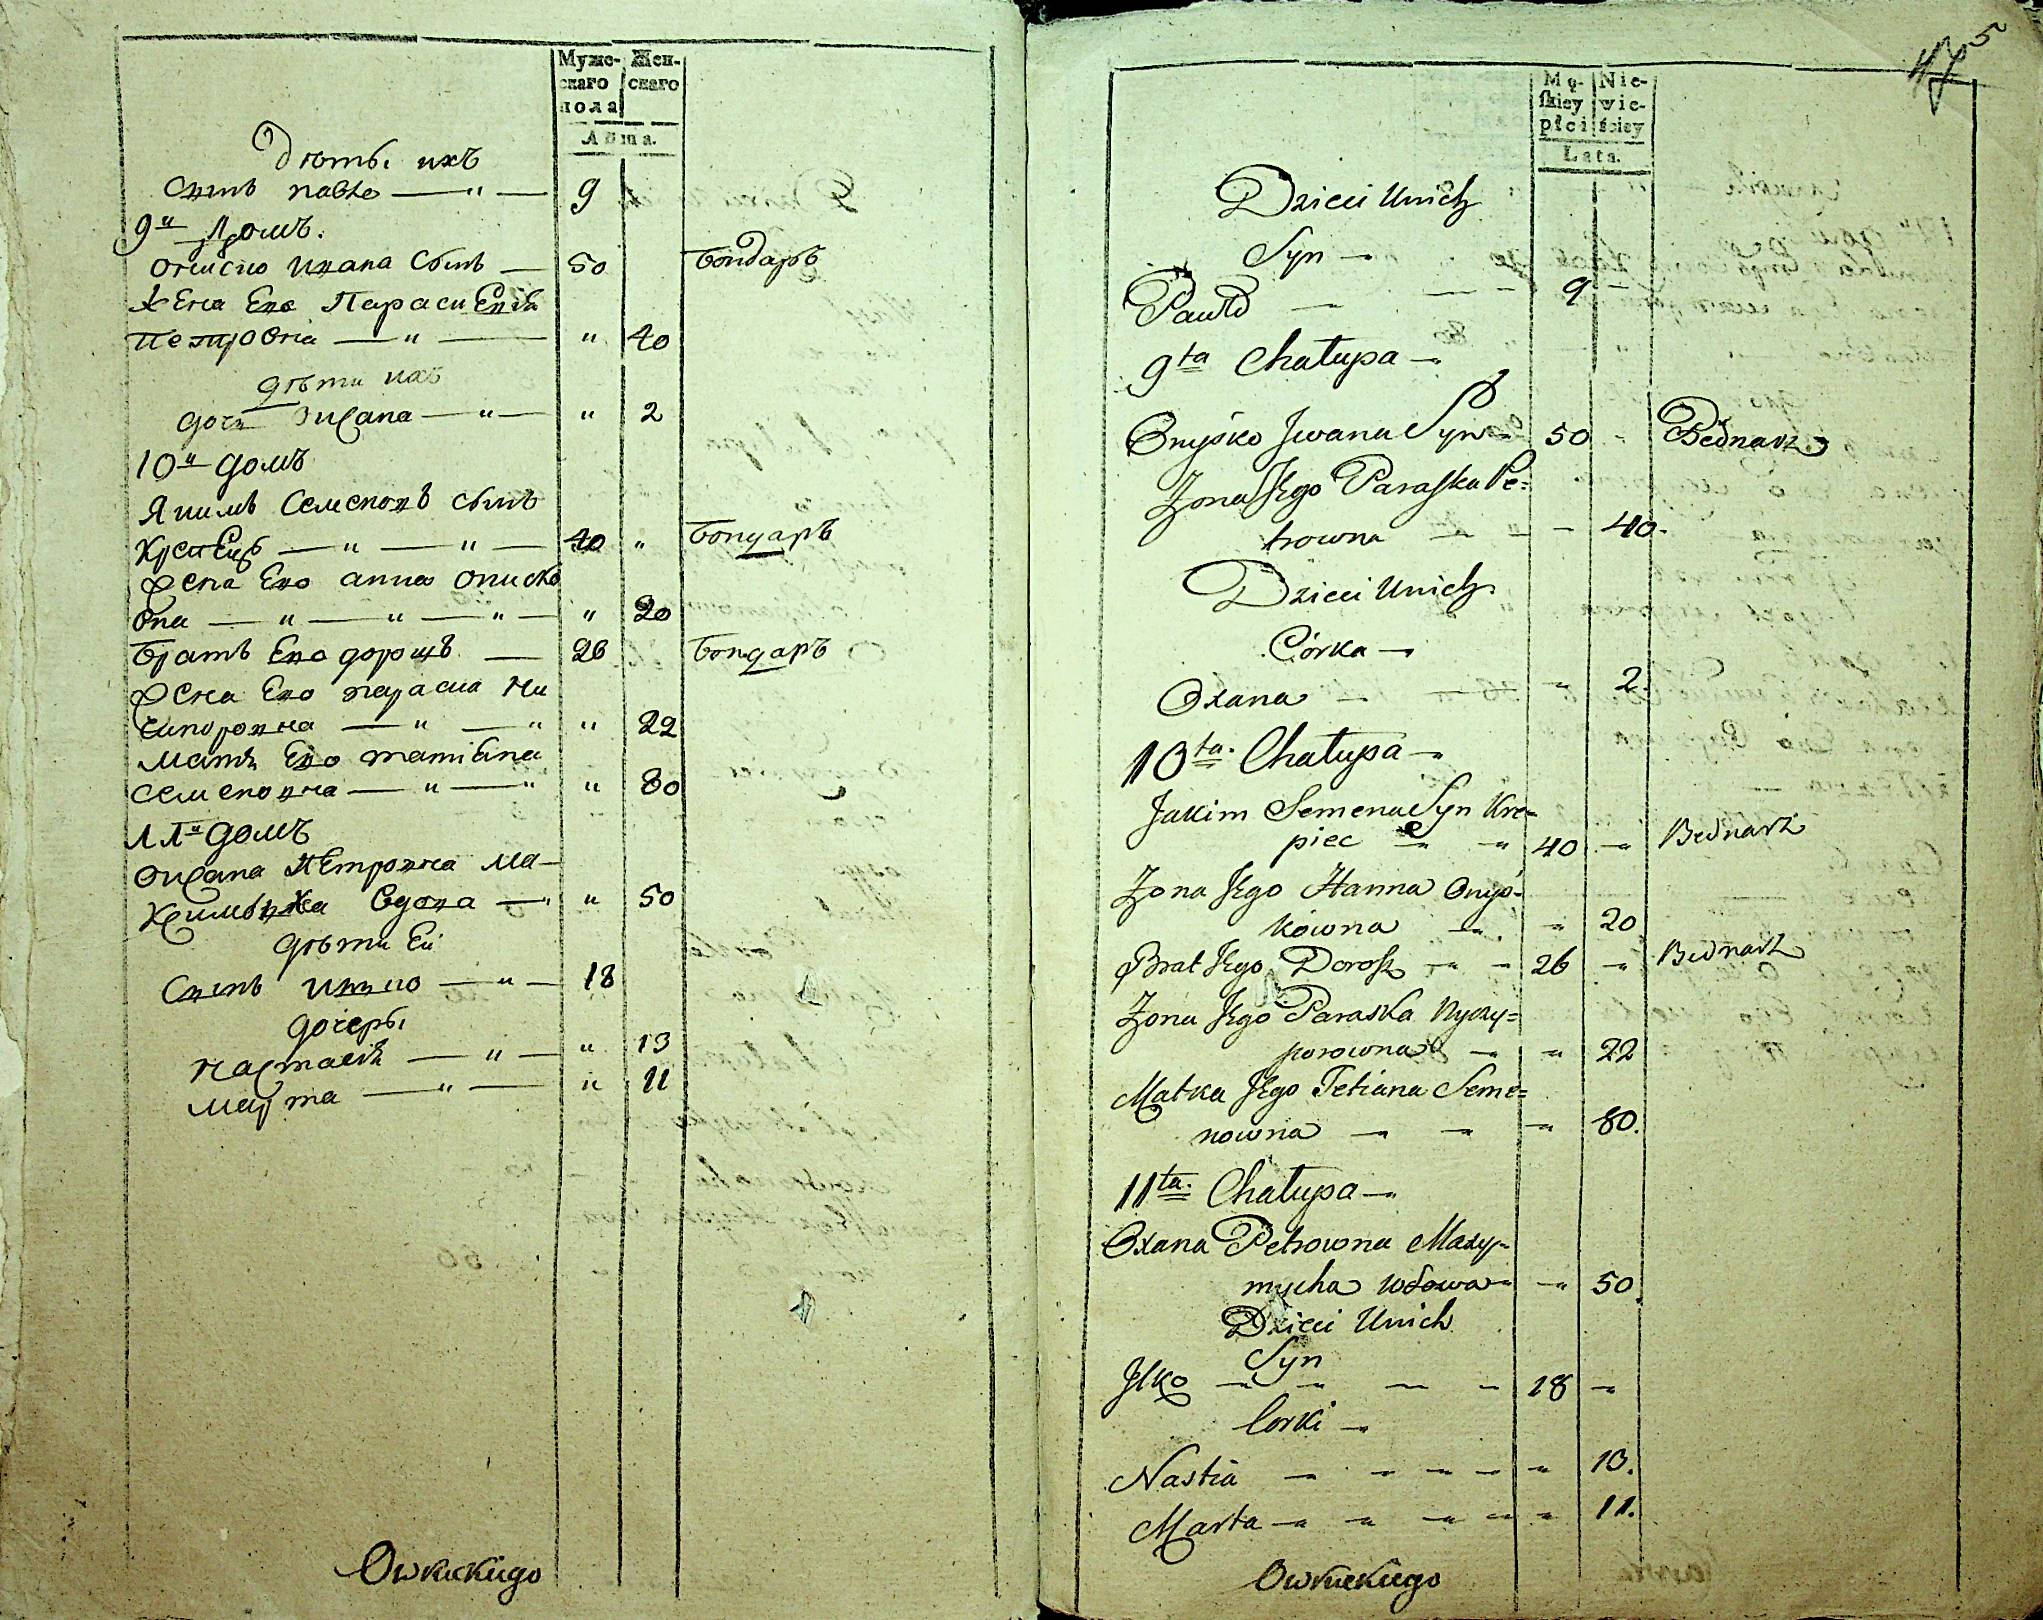 Муже-
скаго
пола
Жен-
скаго
Лѣта.
Дѣты ихъ
Сынъ павло — " — 9
9й Домъ.
Описко Ивана Сынъ — 50 бондаръ
Жена Его Параски Ения
петровна — " — " 40
дѣти ихъ
дочъ Оксана — " — " 2
10й домъ
Якимъ Семеновъ сынъ
Крепецъ — " — " — 40 " бондаръ
жена Его анна Ониско
вна — " — " — " — " 20
братъ Его дорошъ — 26 бондаръ
жена Его параска Ни
чипоровна — " — " " 22
мать Его татіана
семеновна — " — " " 80
11й домъ
Оксана Петровна Ма-
ксимыха вдова — " " 50
дѣти Ей
Сынъ илько — " — 18
дочеры
Настасія — " — " 13
марта — " — " 11
Owruckiego
5
Mę-
skiey
płci
Nie-
wie-
ściey
Lata.
Dzieci Unich
Syn —
Pawło — — - 9 -
9ta Chałupa —
Onysko Jwana Syn - 50 - Bednarz
Zona Jego Paraska Pe=
trowna — — - - 40.
Dzieci Unich
Córka —
Oxana — - 2.
10ta Chałupa —
Jakim Semena Syn Kre=
piec — - 40 - Bednarz
Zona Jego Hanna Onys-
kowna — - 20
Brat Jego Dorosz — - 26 - Bednarz
Zona Jego Paraska Nyczy=
porowna — - 22
Matka Jego Tetiana Seme=
nowna — - - 80.
11ta Chałupa —
Oxana Petrowna Maxy-
mycha wdowa - - 50.
Dzieci Unich
Syn
Jlko — - — - 18 -
Corki —
Nastia — - - - - 13.
Marta — - - - - 11.
Owruckiego